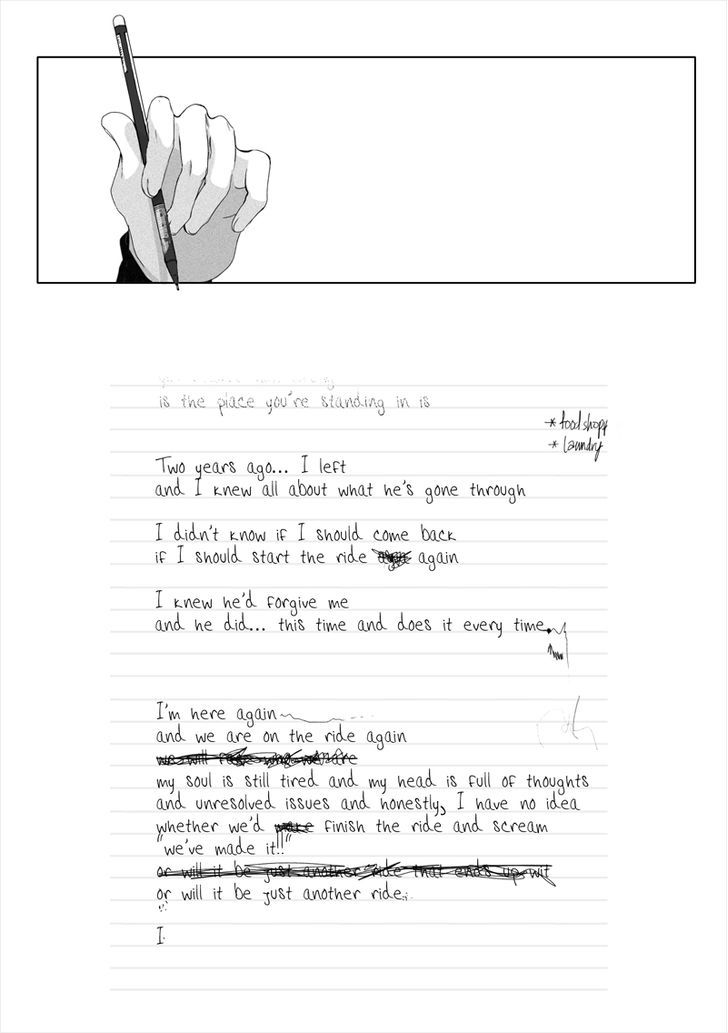 is the place you're standing in is
* food shopp
* laundry
Two years ago... I left
and I knew all about what he's gone through
I didn't know if I should come back
if I should start the ride again
I knew he'd forgive me
and he did... this time and does it every time.
I'm here again
and we are on the ride again
we will
my soul is still tired and my head is full of thoughts
and unresolved issues and honestly, I have no idea
whether we'd finish the ride and scream
"we've made it!!"
or will it be just another ride that ends up wit
or will it be just another ride.
I